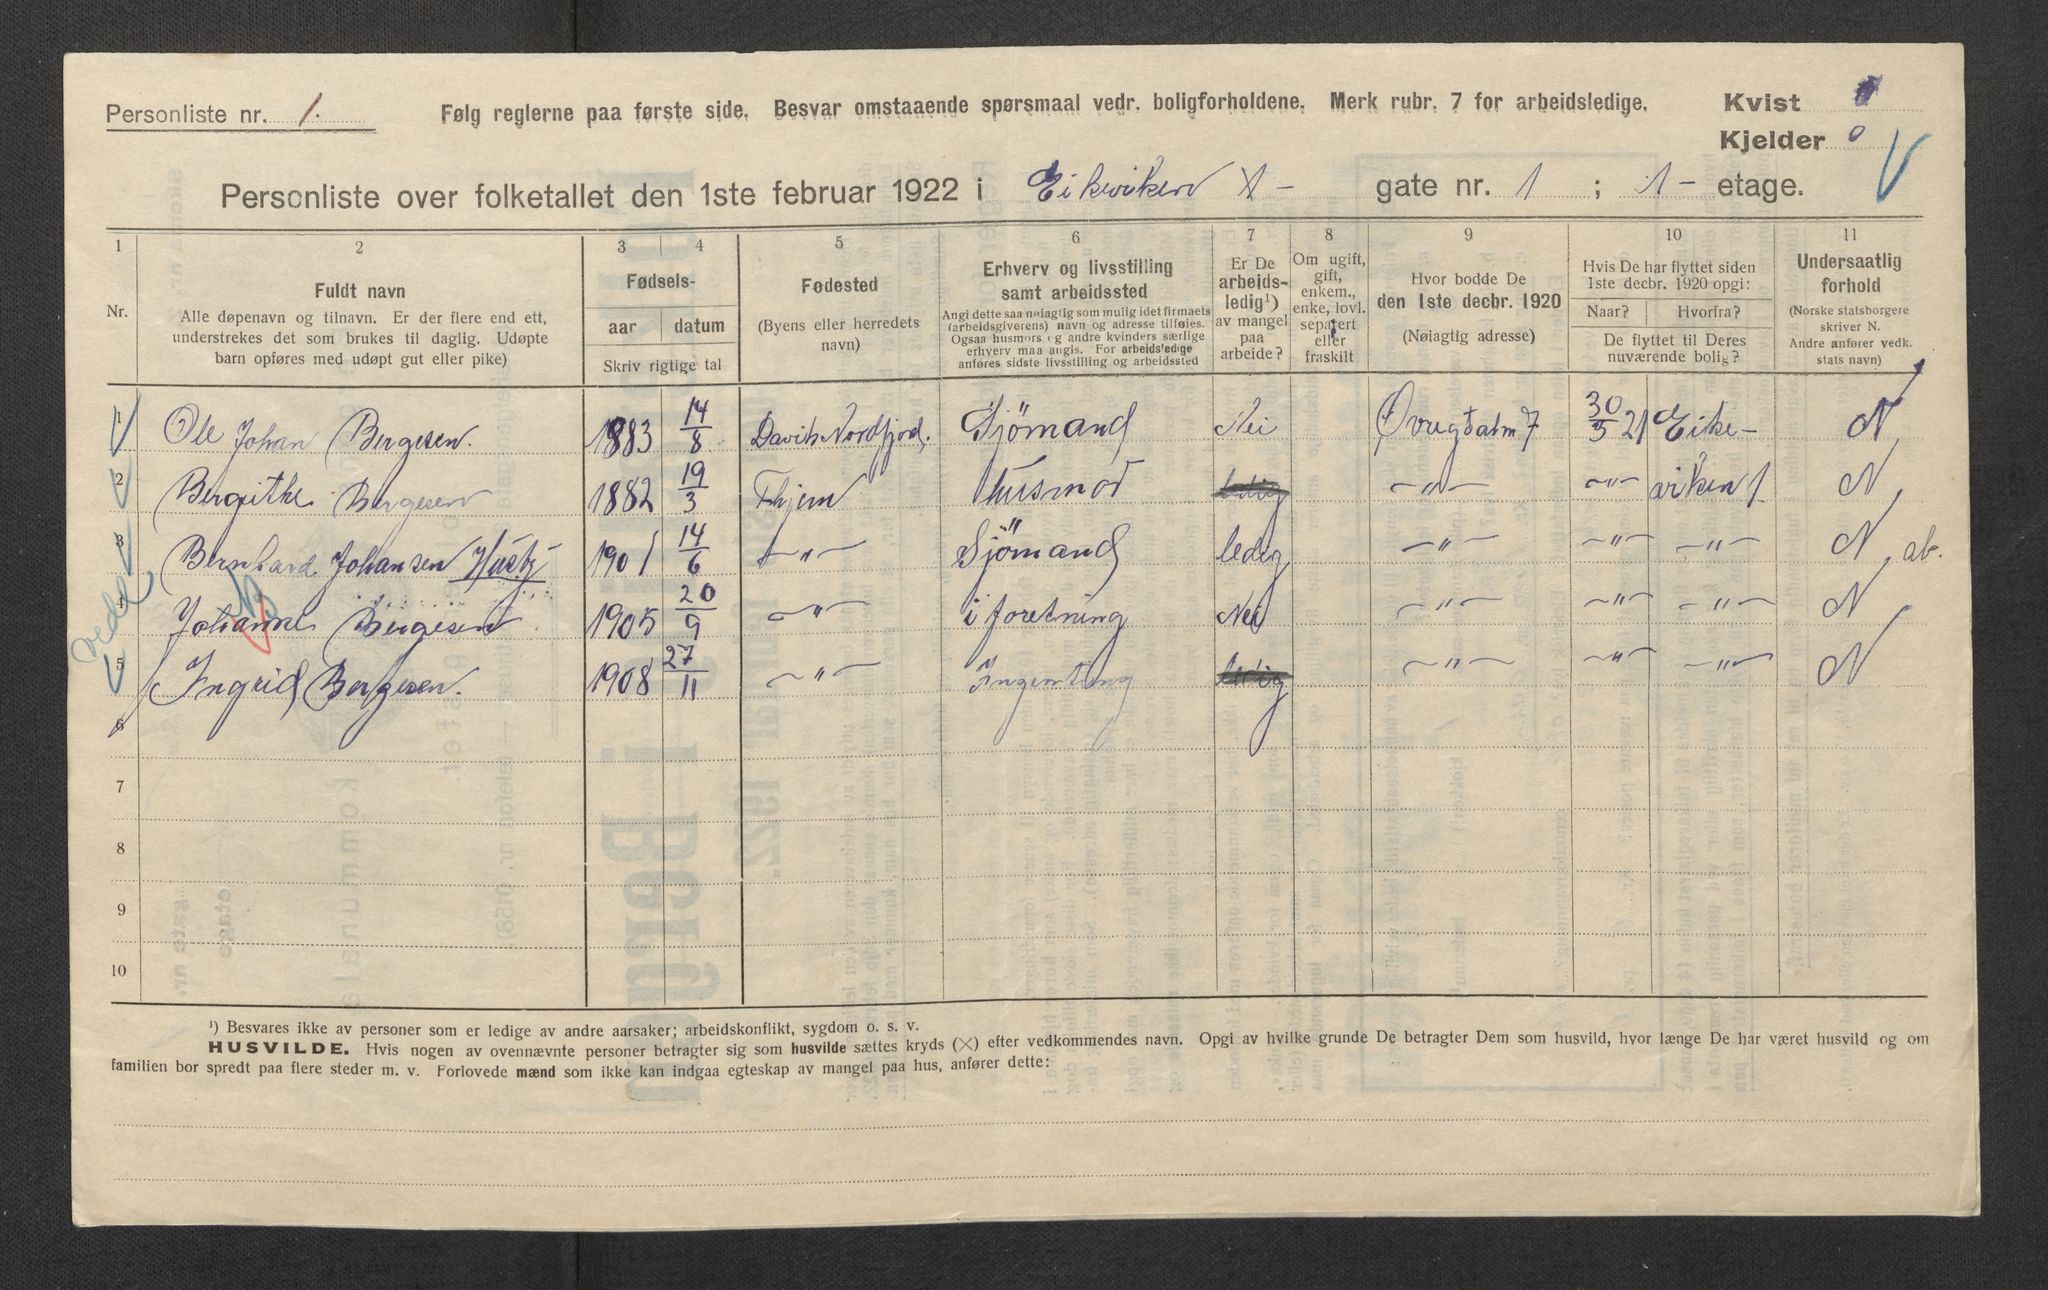 Personliste nr. 1.
Følg reglerne paa første side. Besvar omstaaende spørsmaal vedr. boligforholdene. Merk rubr. 7 for arbeidsledige.
Kvist
Kjelder 0
Personliste over folketallet den 1ste februar 1922 i Eikeviken 1 - gate nr. 1 ; 1 - etage.
1 2 3 4 5 6 7 8 9 10 11
Nr.
Fuldt navn
Alle døpenavn og tilnavn. Er der flere end ett, understrekes det som brukes til daglig. Udøpte barn opføres med udøpt gut eller pike)
Fødsels-
aar datum
Skriv rigtige tal
Fødested
(Byens eller herredets navn)
Erhverv og livsstilling samt arbeidssted
Angi dette saa nøiagtig som mulig idet firmaets (arbeidsgiverens) navn og adresse tilføies. Ogsaa husmors og andre kvinders særlige erhverv maa angis. For arbeidsledige anføres sidste livsstilling og arbeidssted
Er De arbeids-ledig¹) av mangel paa arbeide?
Om ugift, gift, enkem., enke, lovl. separert eller fraskilt
Hvor bodde De den 1ste decbr. 1920
(Nøiagtig adresse)
Hvis De har flyttet siden 1ste decbr. 1920 opgi:
Naar? Hvorfra?
De flyttet til Deres nuværende bolig?
Undersaatlig forhold
(Norske statsborgere skriver N. Andre anfører vedk. stats navn)
1 Ole Johan Bergesen. 1883 14/8 Davik Nordfjord. Sjömand Nei Øvregt 7 30/5 21 Eike- N
2 Bergithe Bergesen 1882 19/3 husmor -"- -"- viken 1 N
3 Bernhard Johansen 1901 14/6 -"- Sjömand ledig -"- -"- -"- N
4 Johanne Bergesen 1905 20/9 -"- i foretning Nei -"- -"- -"- N
5 Ingrid Bergesen. 1908 27/11 -"- Ingenting -"- -"- -"- N
6
7
8
9
10
¹) Besvares ikke av personer som er ledige av andre aarsaker; arbeidskonflikt, sygdom o. s. v.
HUSVILDE. Hvis nogen av ovennævnte personer betragter sig som husvilde sættes kryds (×) efter vedkommendes navn. Opgi av hvilke grunde De betragter Dem som husvild, hvor længe De har været husvild og om
familien bor spredt paa flere steder m. v. Forlovede mænd som ikke kan indgaa egteskap av mangel paa hus, anfører dette: